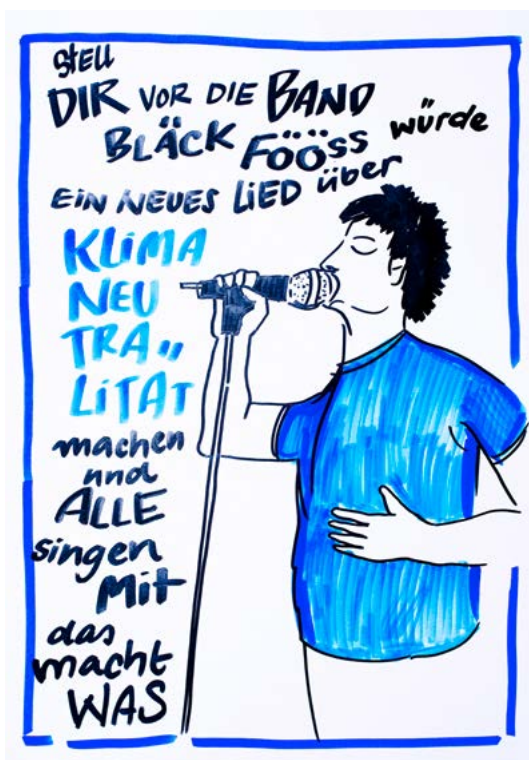 stell
DIR VOR DIE BAND
BLÄCK FÖÖSS würde
EIN NEUES LiED über
KLiMA
NEU
TRA
LiTÄT
machen
und
ALLE
singen
Mit
das
macht
WAS